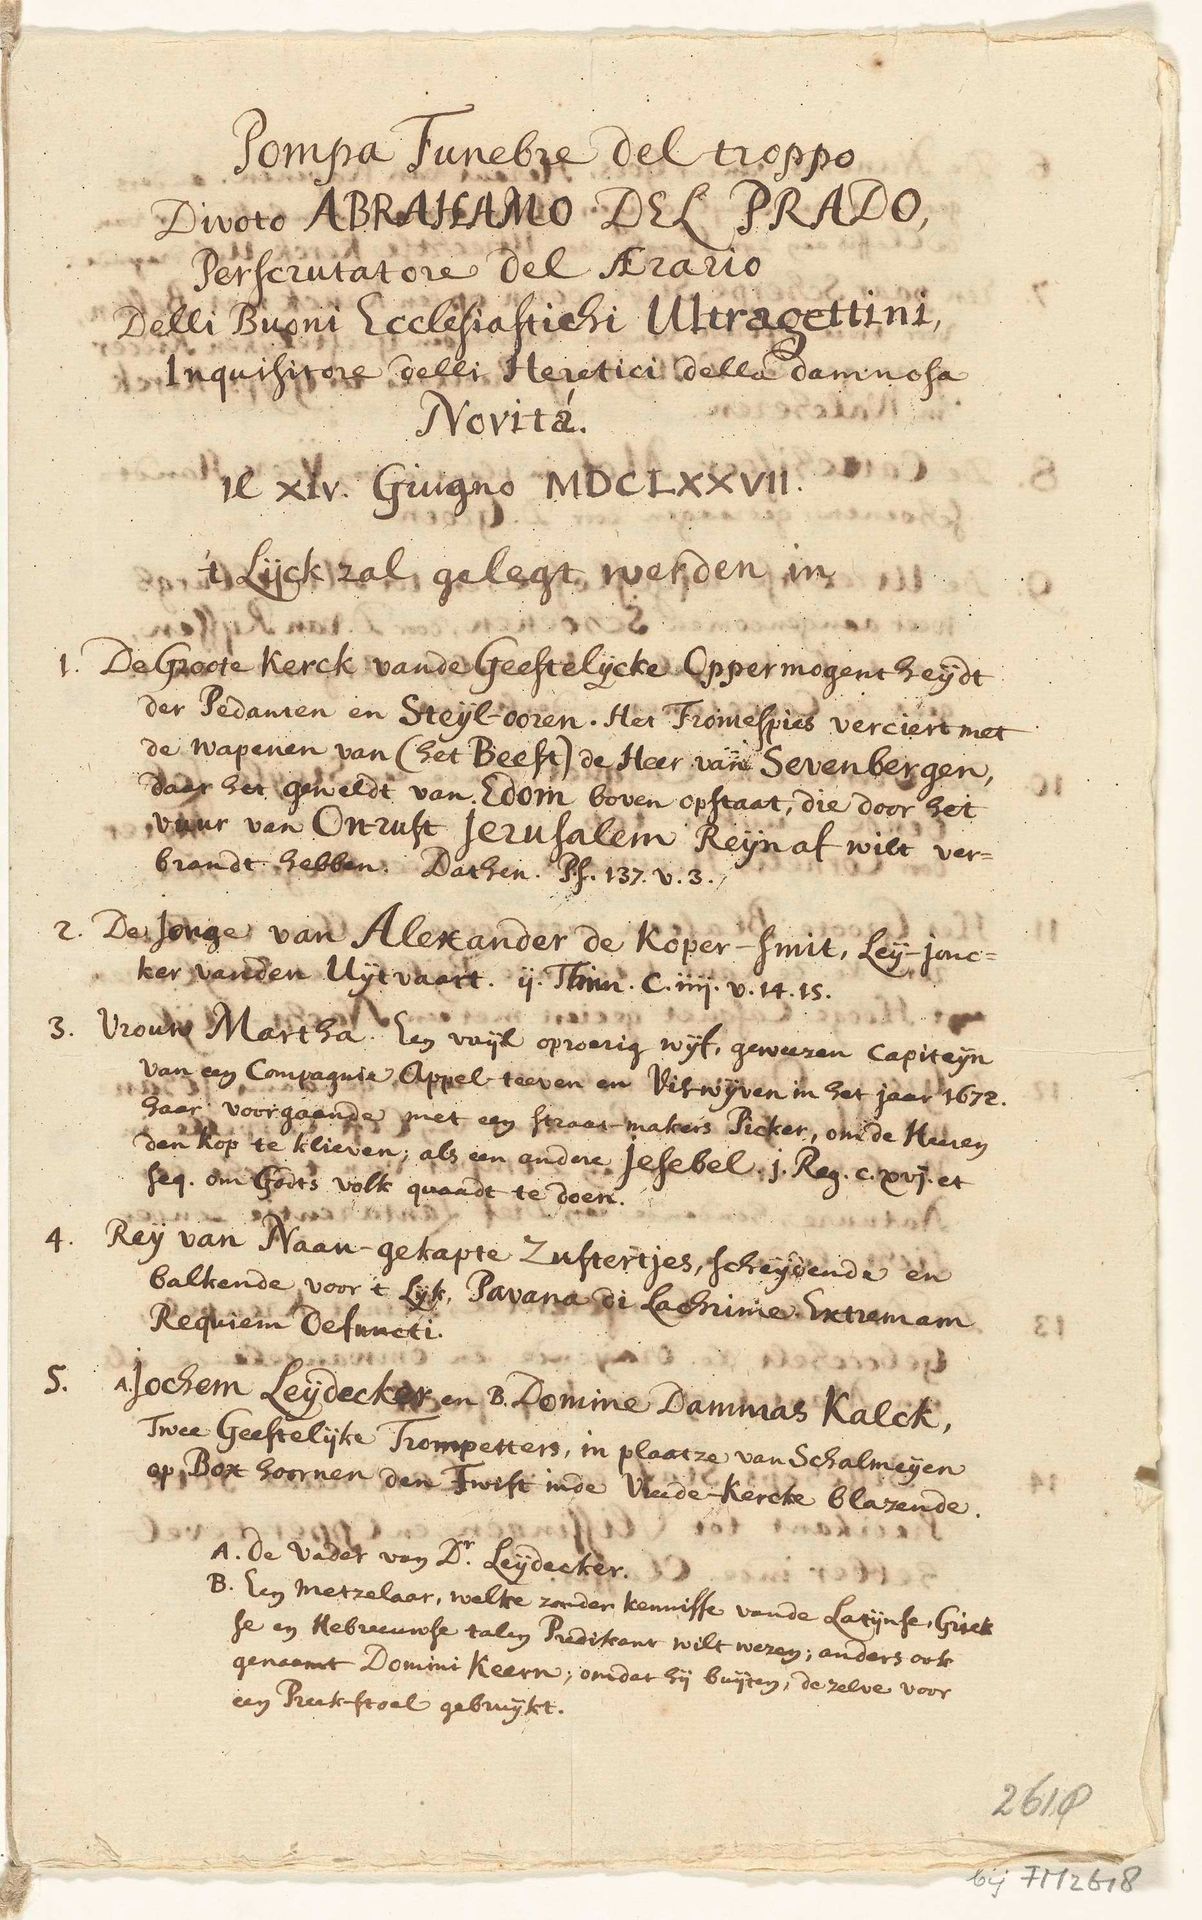 Pompa Funebre del troppo
Divoto ABRAHAMO DEL PRADO,
Perscrutatore del Ærario
Delli Buoni Ecclesiastichi Ultragettini,
Inquisitore delli Heretici della damnosa
Novitá.
Il XIV. Giugno MDCLXXVII.
't Lijck zal gelegt werden in
1. De Groote Kerck vande Geestelijcke Oppermogentheijdt
der Pedanten en Steijl-ooren. Het Frontespies verciert met
de wapenen van (het Beest) de Heer van Sevenbergen,
daar het geweldt van Edom boven opstaat, die door het
vuur van Onrust Jerusalem Reijn af wilt ver=
brandt hebben. Dathen. Ps. 137. v. 3.
2. De Jonge van Alexander de Koper-smit, Leij-jonc=
ker vanden Uijtvaart. ij. Thim. C. iiij. v. 14. 15.
3. Vrouw Martha. Een vuijl oproerig wijf, geweezen Capiteijn
van een Compagnie Appel-teeven en Viswijven in het jaar 1672.
haar voorgaande met een straat-makers Picker, om de Heeren
den kop te klieven; als een andere Jesebel. j. Reg. c. xvj. et
seq. om Godts volk quaadt te doen.
4. Reij van Naau-gekapte Zustertjes, schreijdende en
balkende voor 't Lijk, Pavana di Lachrime. Extremam
Requiem Defuncti.
5. A. Jochem Leijdecker en B. Domine Dammas Kalck,
Twee Geestelijke Trompetters, in plaatze van Schalmeijen
op Box hoornen den Twist inde Vrede-Kercke blazende.
A. De Vader van Dr. Leijdecker.
B. Een Metzelaar, welke zonder kennisse vande Latijnse, Griek
se en Hebreeuwse talen Predikant wilt wezen; anders ook
genaemt Domini Keern; omdat hij buijten, dezelve voor
een Preek-stoel gebruijkt.
2618
bij FM2618